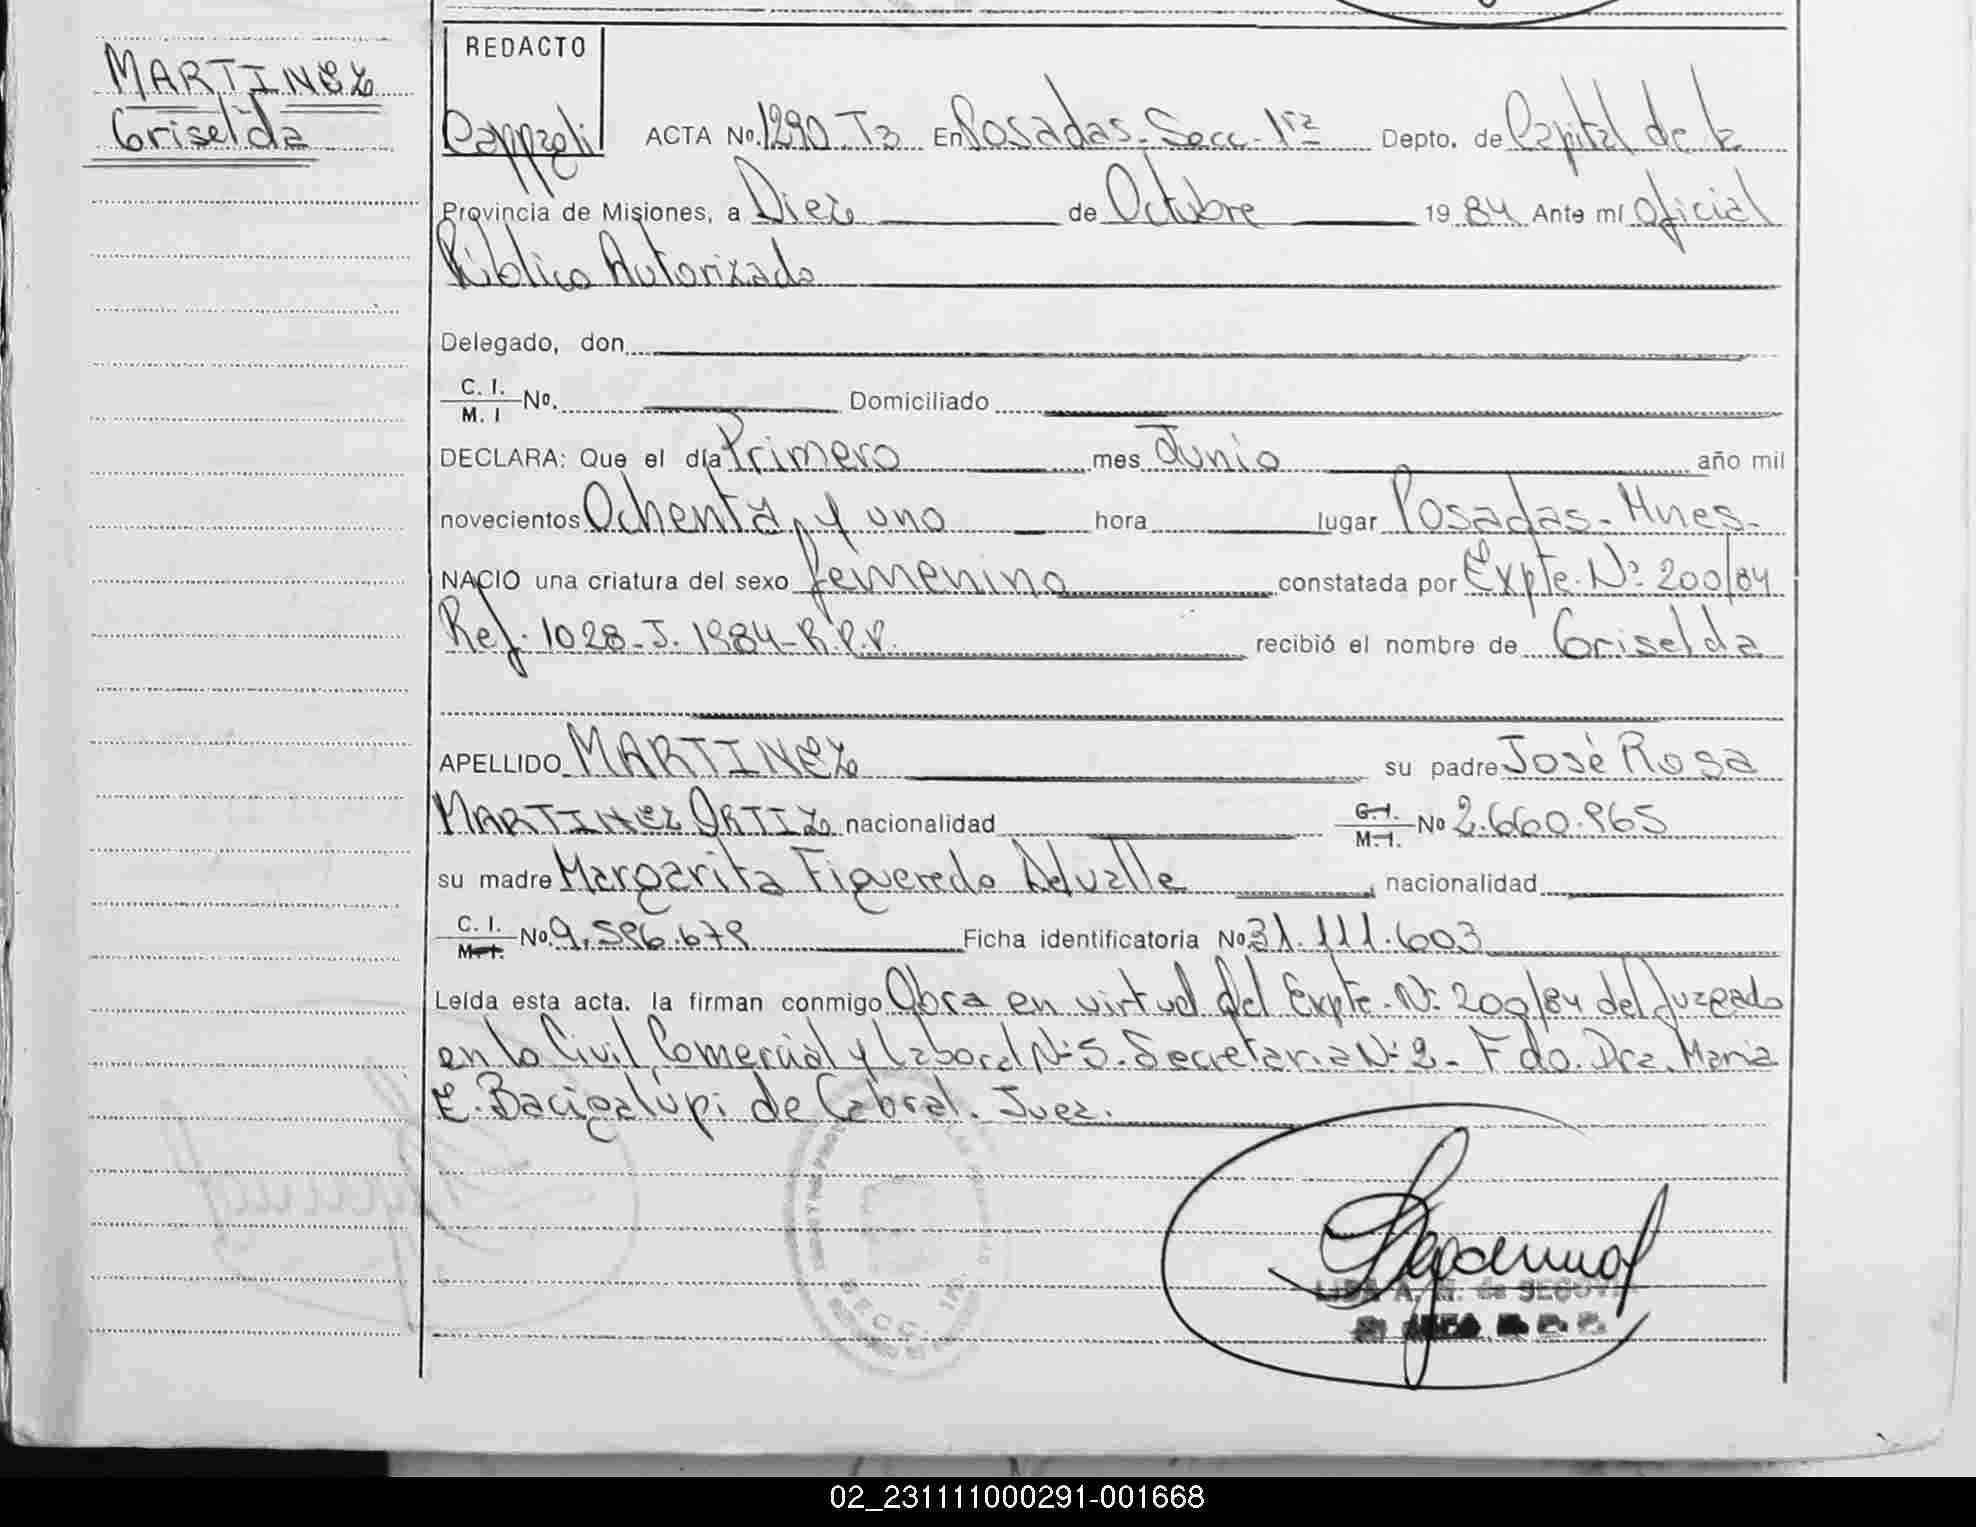 MARTINEZ
Griselda
REDACTO
ACTA No. 1290 T3 En Posadas - Secc - 1ra Depto. de Capital de la
Provincia de Misiones, a Diez de Octubre 1984 Ante mí Oficial
Público Autorizado
Delegado, don
C. I.
M. I No. Domiciliado
DECLARA: Que el día Primero mes Junio año mil
novecientos Ochenta y uno hora lugar Posadas - Mnes -
NACIO una criatura del sexo femenino constatada por Expte. Nº 200/84
Ref. 1028 - J. 1984 - R.P.P. recibió el nombre de Griselda
APELLIDO MARTINEZ su padre José Rosa
MARTINEZ ORTIZ nacionalidad C. I. M. I. No 2.660.965
su madre Margarita Figueredo Delvalle, nacionalidad
C. I. M. I. No. 9.596.679 Ficha identificatoria No 31.111.603
Leída esta acta. la firman conmigo Obra en virtud del Expte. Nº 200/84 del Juzgado
en lo Civil Comercial y Laboral Nº 5 - Secretaria Nº 2 - Fdo. Dra. Maria
E. Bacigalupi de Cabral. Juez.
SECC. 1ra.
LIDA A. M. de SEGOVIA
02_231111000291-001668